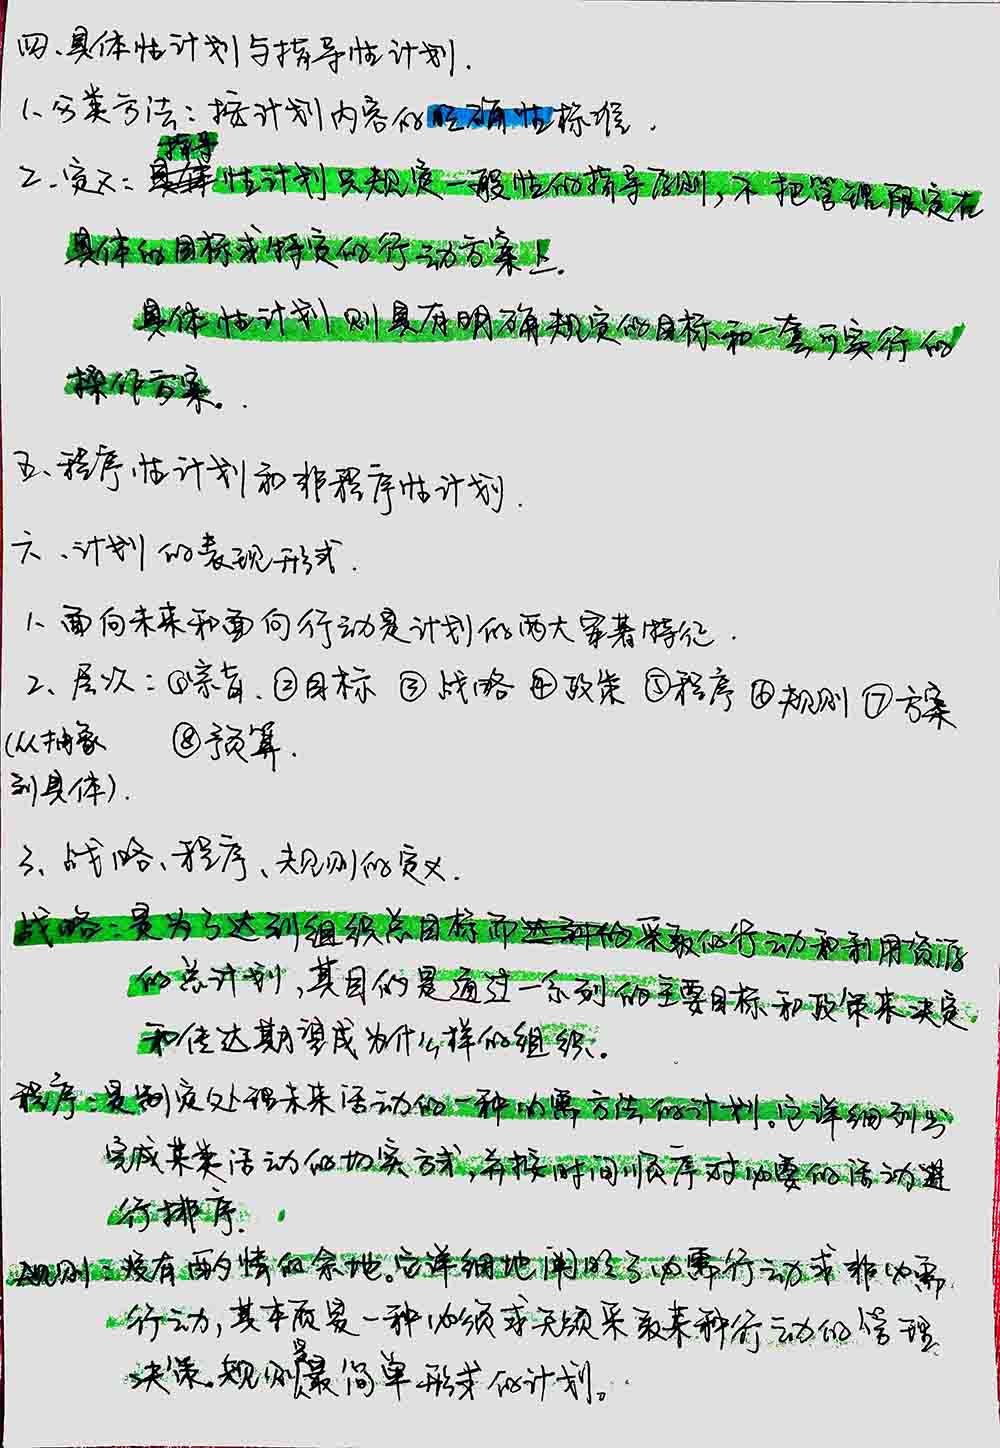 四、具体性计划与指导性计划.
1、分类方法：按计划内容的明确性标准.
指导
2、定义：具体性计划只规定一般性的指导原则,不把管理限定在
具体的目标或特定的行动方案上.
具体性计划则具有明确规定的目标和一套可实行的
操作方案。
五、程序性计划和非程序性计划.
六、计划的表现形式.
1、面向未来和面向行动是计划的两大显著特征.
2、层次：①宗旨、②目标 ③战略 ④政策 ⑤程序 ⑥规则 ⑦方案
(从抽象 ⑧预算.
到具体).
3、战略、程序、规则的定义.
战略：是为了达到组织总目标而采取的行动和利用资源
的总计划,其目的是通过一系列的主要目标和政策来决定
和传达期望成为什么样的组织。
程序：是制定处理未来活动的一种必需方法的计划。它详细列出
完成某类活动的切实方式,并按时间顺序对必要的活动进
行排序.
规则：没有酌情的余地。它详细地阐明了必需行动或非必需
行动,其本质是一种必须或无须采取某种行动的管理
决策。规则是最简单形式的计划。